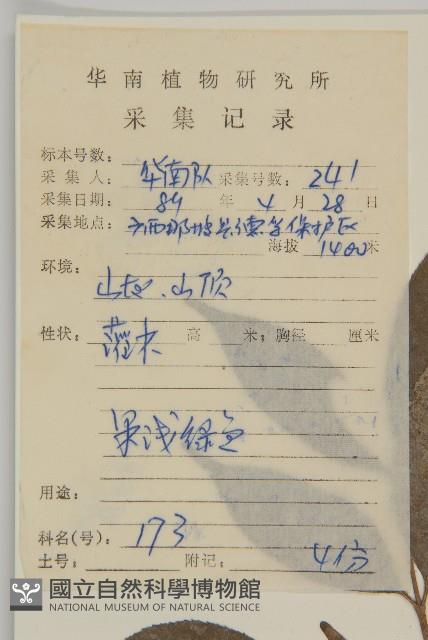 华南植物研究所
采集记录
标本号数：
采集人：华南队 采集号数：241
采集日期：89年4月28日
采集地点：广西那坡县德孚保护区
海拔1400米
环境：
山坡.山顶
性状：灌木 高 米；胸径 厘米
果浅绿色
用途：
科名(号)：173
土号： 附记： 4份
國立自然科學博物館
NATIONAL MUSEUM OF NATURAL SCIENCE